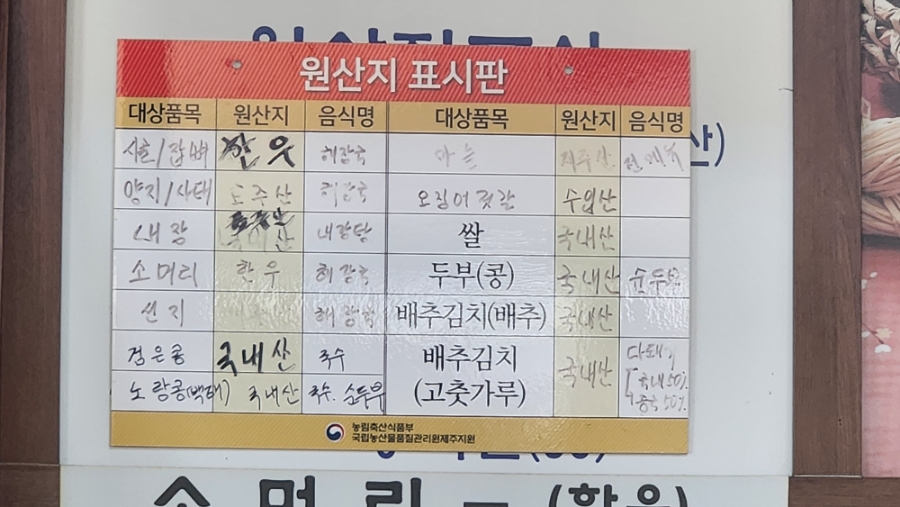 원산지 표시판
대상품목 원산지 음식명 대상품목 원산지 음식명
사골/잡뼈 한우 해장국 마늘 제주산
양지/사태 호주산 해장국 오징어젓갈 수입산
내장 산 내장탕 쌀 국내산
소머리 한우 해장국 두부(콩) 국내산 순두부
선지 해장국 배추김치(배추) 국내산
검은콩 국내산 국수 배추김치 국내산
노랑콩(백태) 국내산 국수. 순두부 (고춧가루) 국내50%
중국50%
농림축산식품부
국립농산물품질관리원제주지원
산)
소 머 리 - (한우)